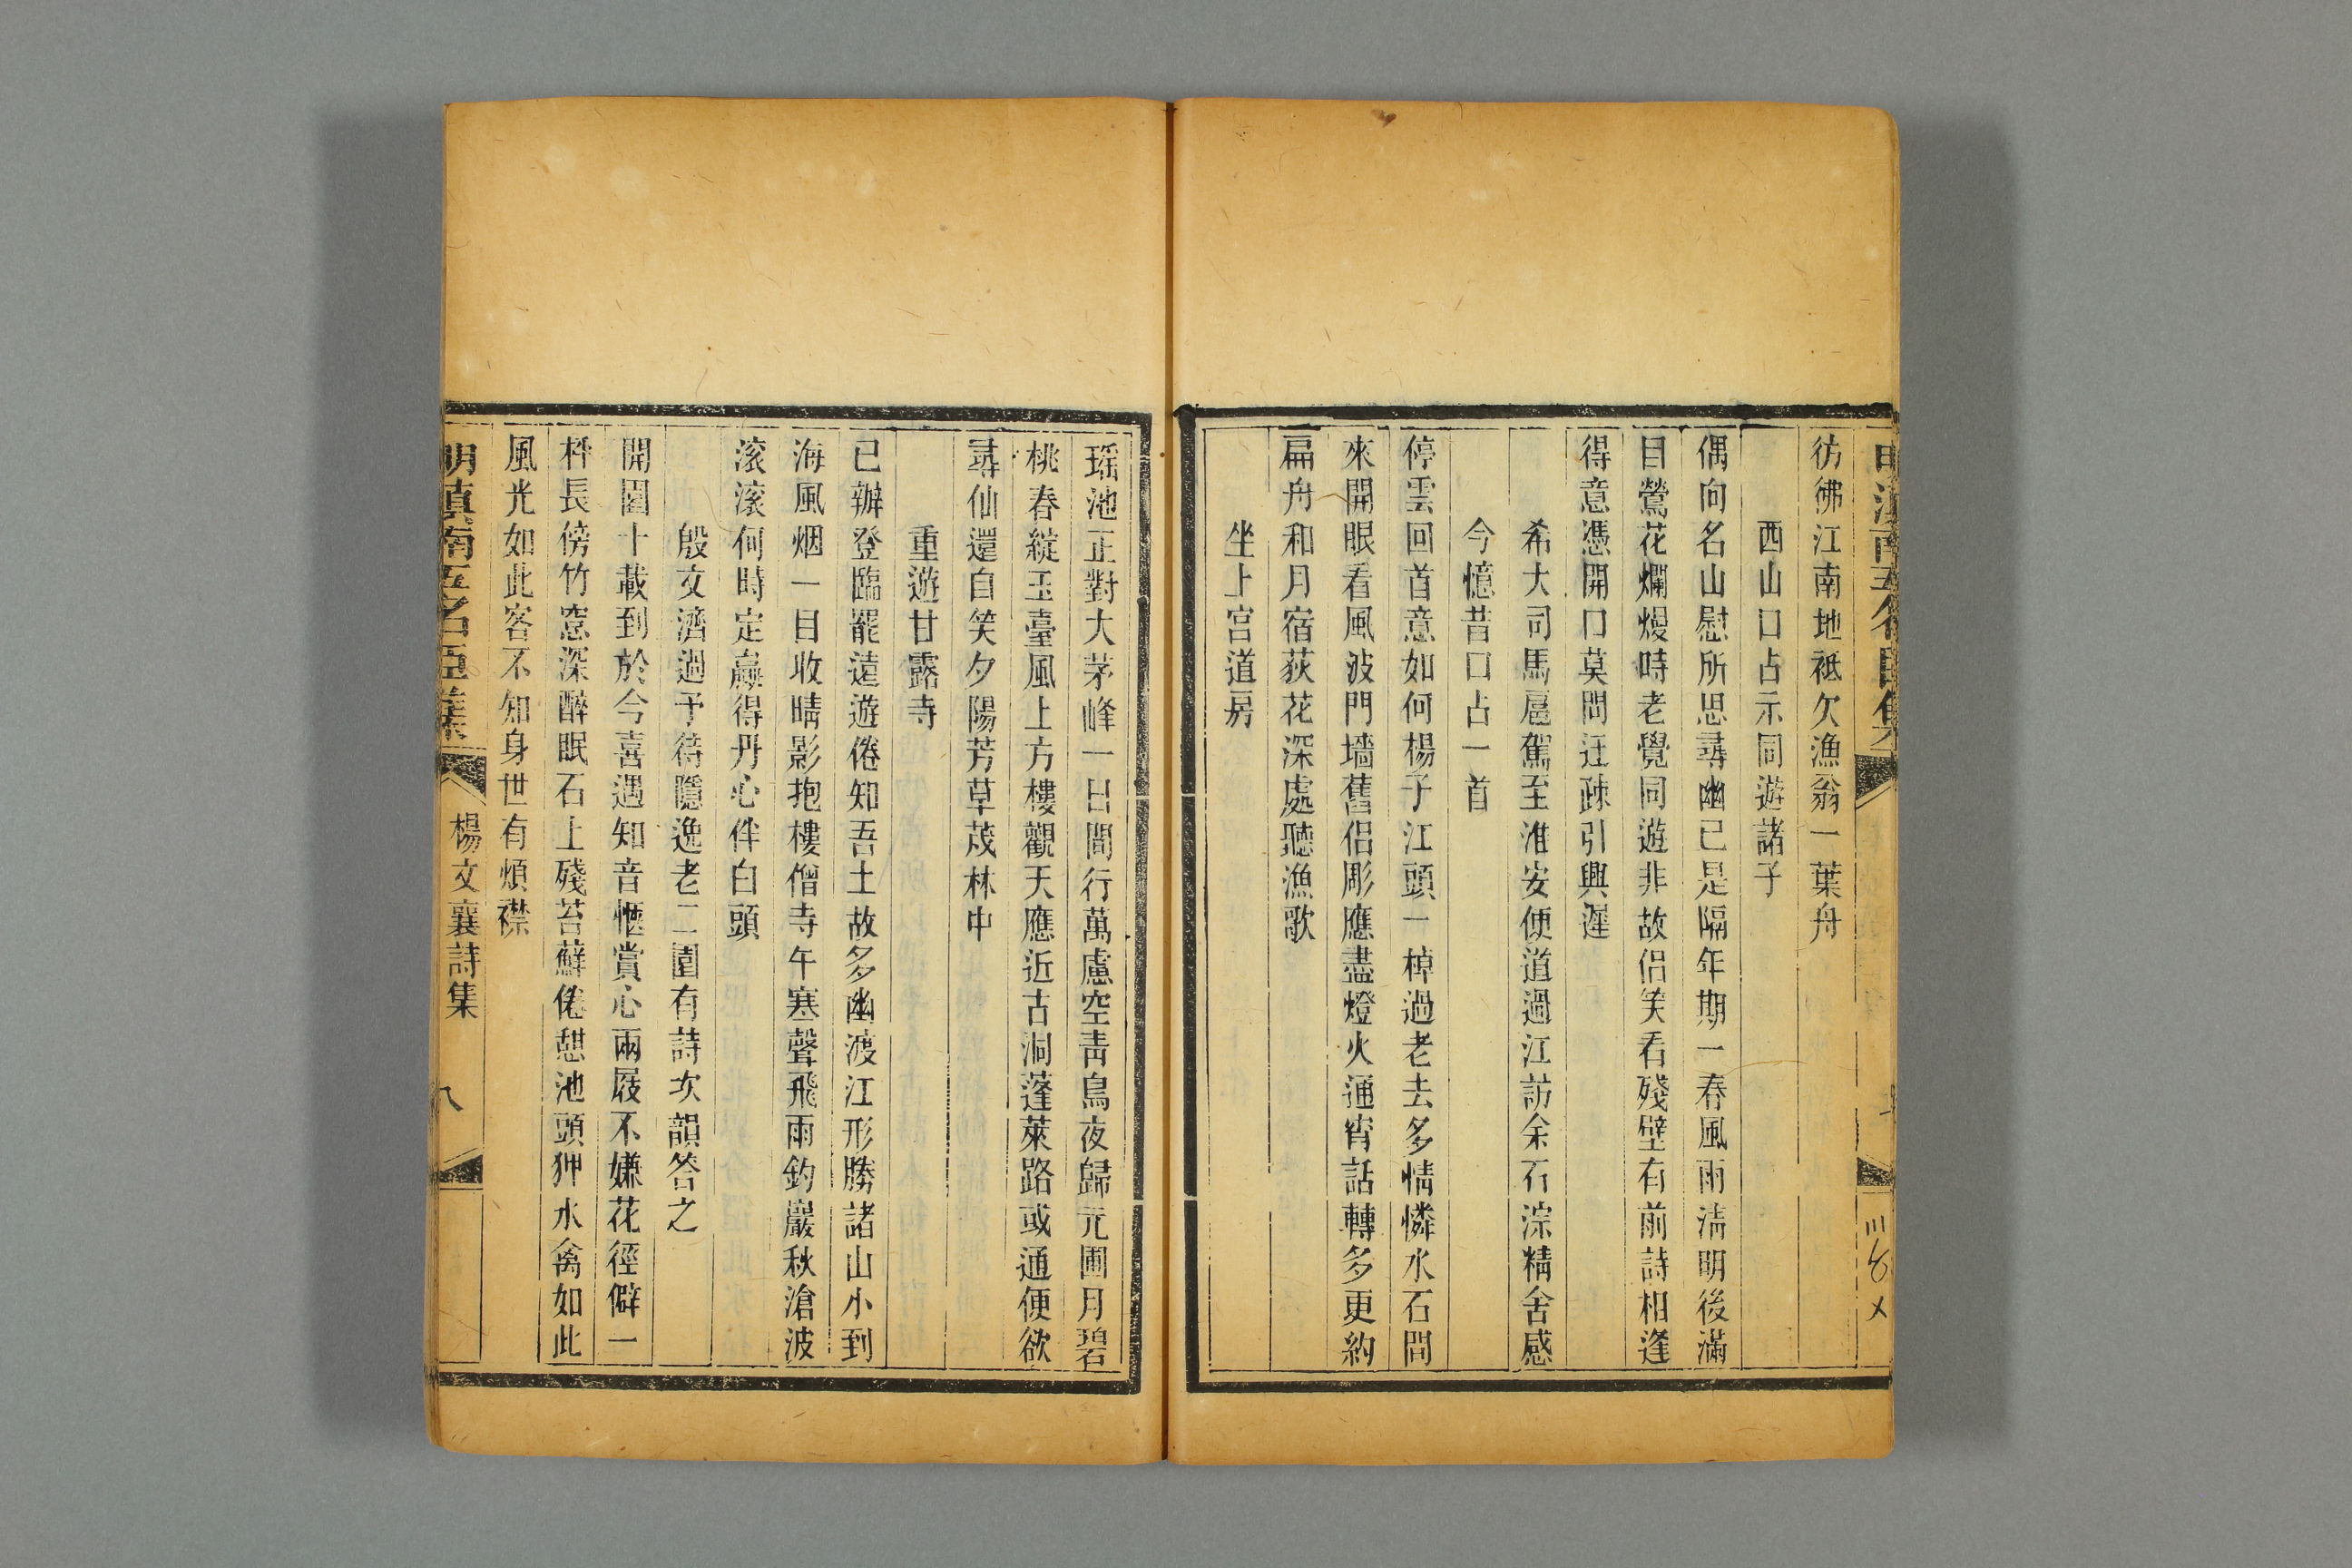 彷彿江南地祗欠漁翁一葉舟
西山口占示同遊諸子
偶向名山慰所思尋幽已是隔年期一春風雨淸明後滿
目鶯花爛熳時老覺同遊非故侶笑看殘壁有前詩相逢
得意憑開口莫問迂疎引興遲
希大司馬扈駕至淮安便道過江訪余石淙精舍感
今憶昔口占一首
停雲回首意如何楊子江頭一棹過老去多情憐水石間
來開眼看風波門墻舊侶彫應盡燈火通宵話轉多更約
扁舟和月宿荻花深處聽漁歌
坐上宫道房
瑶池正對大茅峰一日間行萬慮空靑鳥夜歸元圃月碧
桃春綻玉臺風上方樓觀天應近古洞蓬萊路或通便欲
尋仙還自笑夕陽芳草茂林中
重遊甘露寺
已辦登臨罷遠遊倦知吾土故多幽渡江形勝諸山小到
海風烟一目收晴影抱樓僧寺午寒聲飛雨釣巖秋滄波
滚滚何時定贏得丹心伴白頭
殷文濟過予待隱逸老二園有詩次韻答之
開園十載到於今喜遇知音愜賞心兩屐不嫌花徑僻一
枰長傍竹窓深醉眠石上殘苔蘚倦憇池頭狎水禽如此
風光如此客不知身世有煩襟
明滇南五名臣集
楊文襄詩集
八